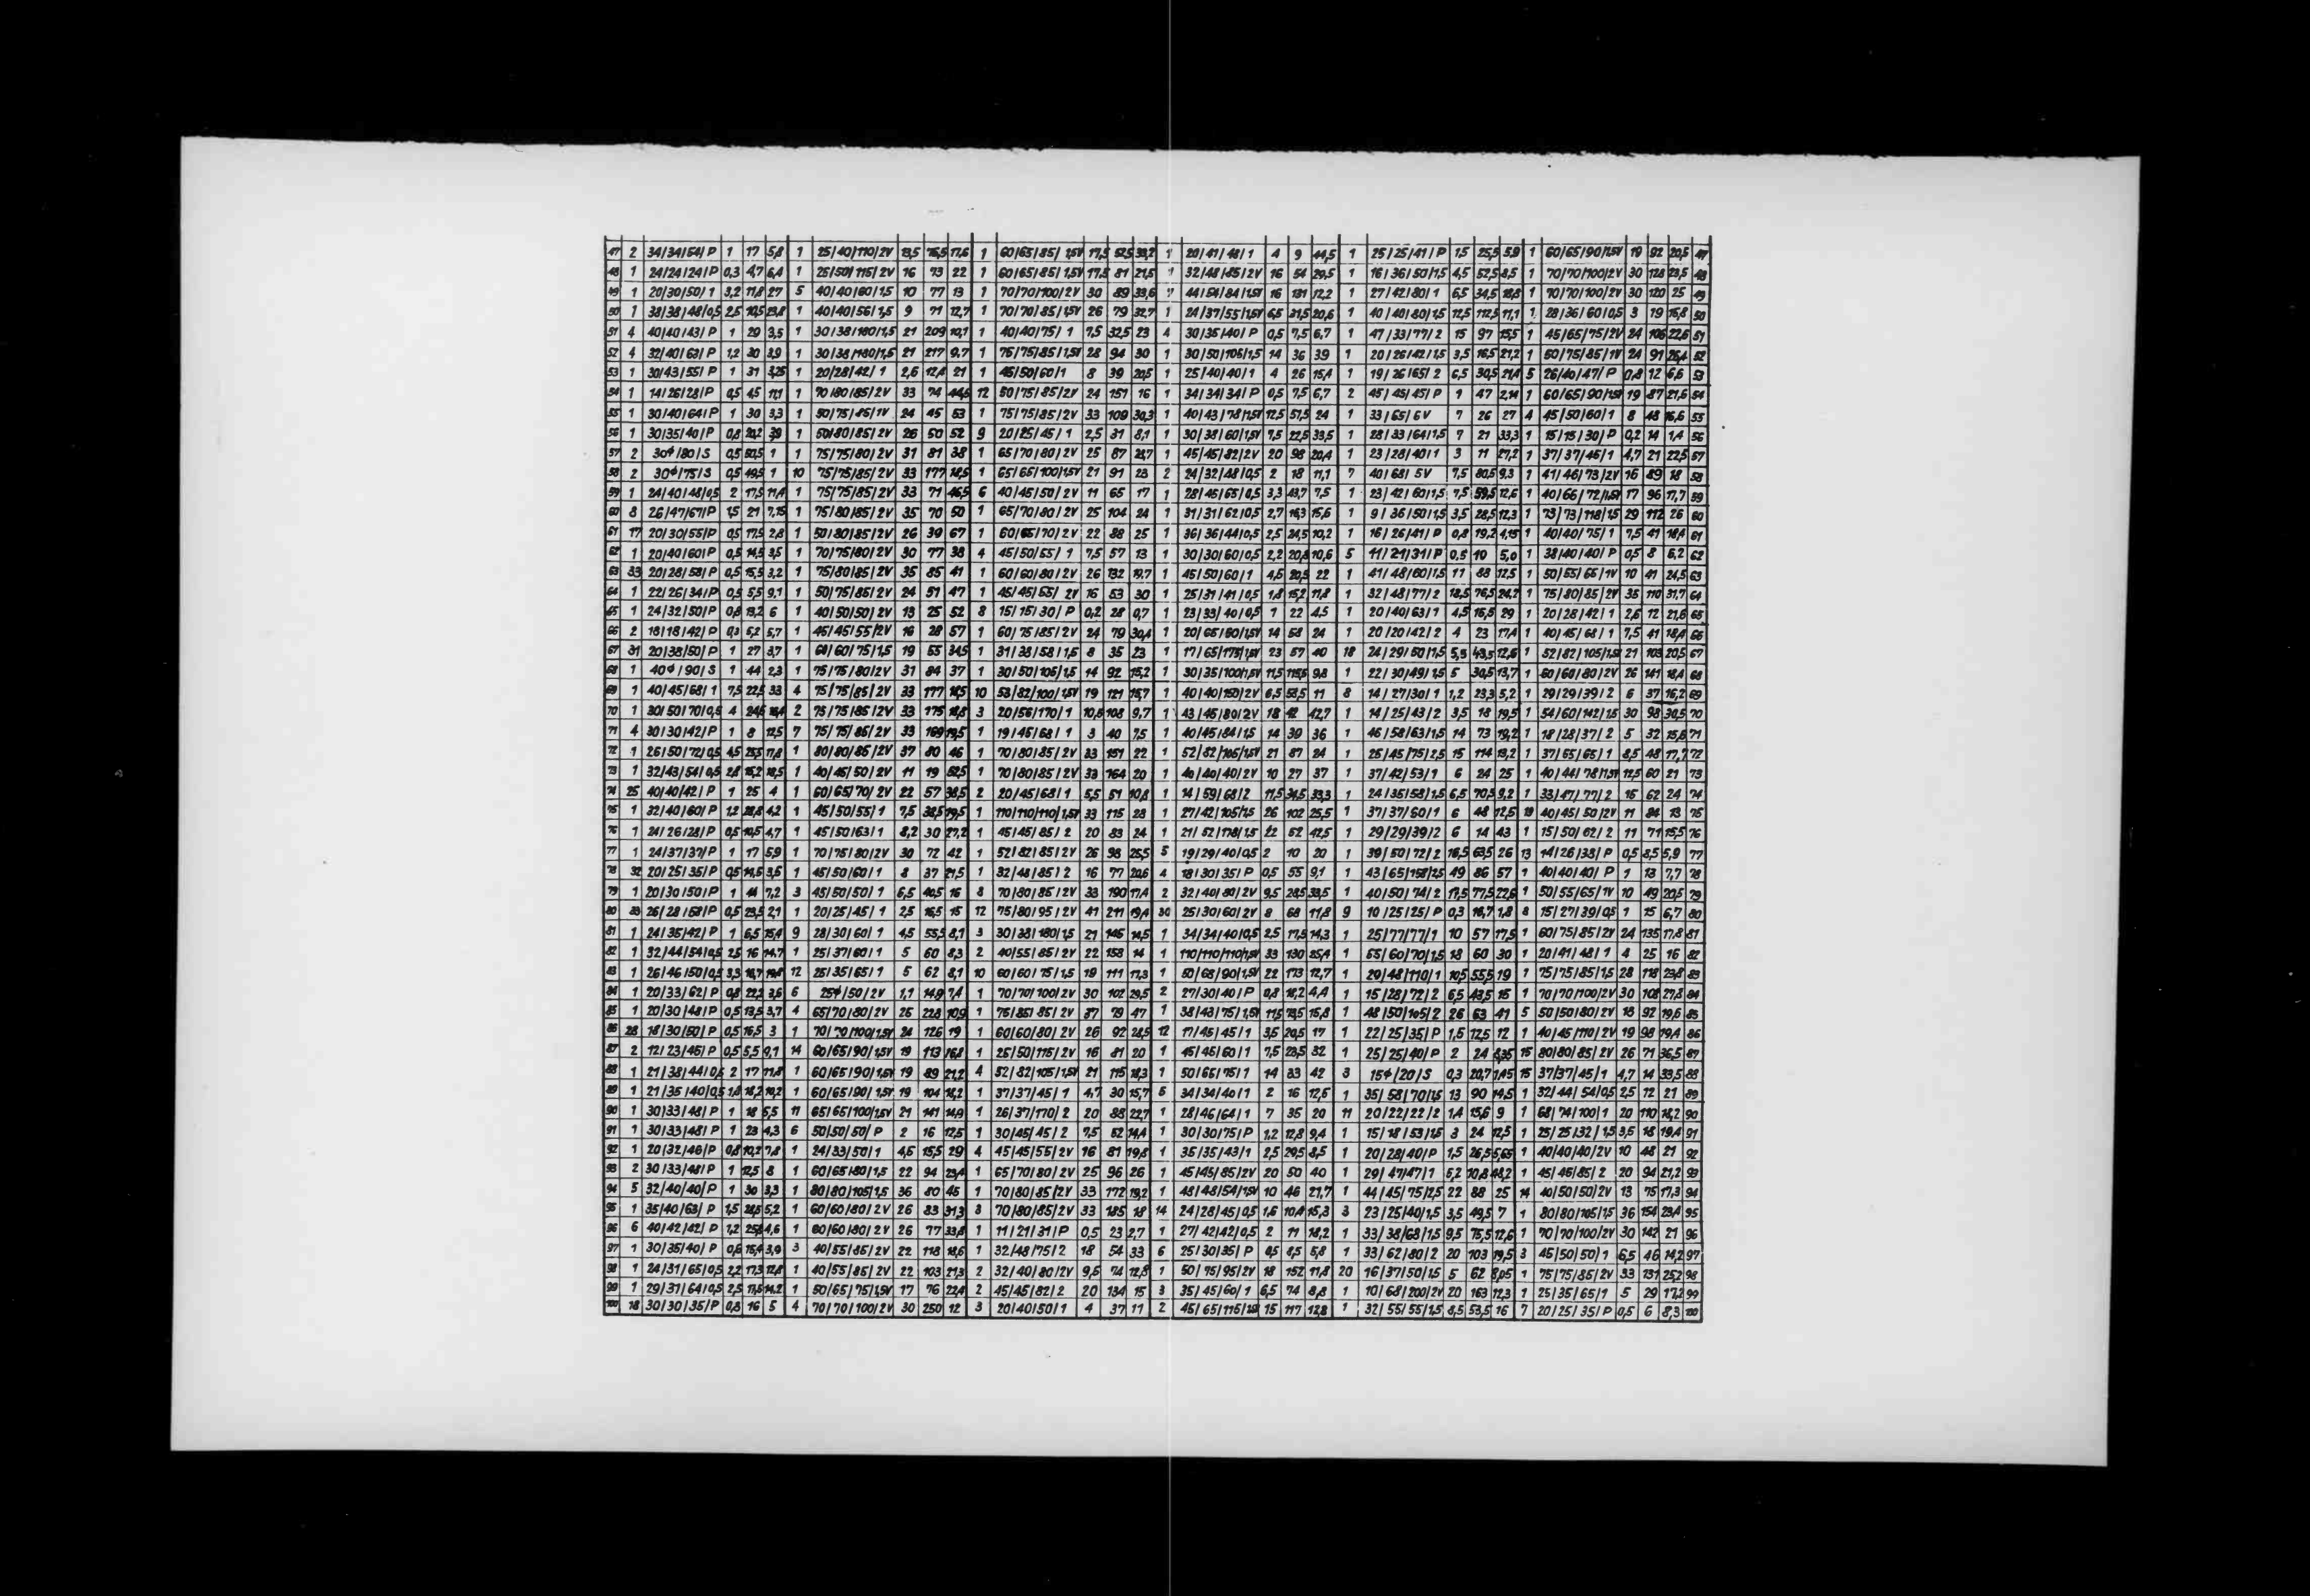 47 2 34/34/54/P 1 17 5,8 1 25/40/110/2V 13,5 76,5 17,6 1 60/65/85/1,5V 17,5 52,5 33,2 1 20/41/48/1 4 9 44,5 1 25/25/41/P 1,5 25,5 5,9 1 60/65/90/1,5V 19 92 20,5 47
48 1 24/24/24/P 0,3 4,7 6,4 1 25/50/115/2V 16 73 22 1 60/65/85/1,5V 17,5 81 21,5 1 32/48/85/2V 16 54 29,5 1 16/36/50/1,5 4,5 52,5 8,5 1 70/70/100/2V 30 128 23,5 48
49 1 20/30/50/1 3,2 11,8 27 5 40/40/60/1,5 10 77 13 1 70/70/100/2V 30 89 33,6 44/54/84/1,5V 16 131 12,2 1 27/42/80/1 6,5 34,5 18,8 1 70/70/100/2V 30 120 25 49
50 1 38/38/48/0,5 2,5 10,5 23,8 1 40/40/56/1,5 9 71 12,7 1 70/70/85/1,5V 26 79 32,7 1 24/37/55/1,5V 6,5 31,5 20,6 1 40/40/80/1,5 12,5 112,5 11,1 1 28/36/60/0,5 3 19 15,8 50
51 4 40/40/43/P 1 29 3,5 1 30/38/180/1,5 21 209 10,1 1 40/40/75/1 7,5 32,5 23 4 30/35/40/P 0,5 7,5 6,7 1 47/33/77/2 15 97 15,5 1 45/65/75/2V 24 106 22,6 51
52 4 32/40/63/P 1,2 30 3,9 1 30/38/180/1,5 21 217 9,7 1 75/75/85/1,5V 28 94 30 1 30/50/106/1,5 14 36 39 1 20/26/42/1,5 3,5 16,5 21,2 1 60/75/85/1V 24 91 26,4 52
53 1 30/43/55/P 1 31 3,25 1 20/28/42/1 2,6 12,4 21 1 45/50/60/1 8 39 20,5 1 25/40/40/1 4 26 15,4 1 19/26/65/2 6,5 30,5 21,4 5 26/40/47/P 0,8 12 6,6 53
54 1 14/26/28/P 0,5 4,5 11,1 1 70/80/85/2V 33 74 44,5 12 50/75/85/2V 24 151 16 1 34/34/34/P 0,5 7,5 6,7 2 45/45/45/P 1 47 2,14 1 60/65/90/1,5V 19 87 21,6 54
55 1 30/40/64/P 1 30 3,3 1 50/75/85/1V 24 45 53 1 75/75/85/2V 33 109 30,3 1 40/43/78/1,5V 12,5 51,5 24 1 33/65/6V 7 26 27 4 45/50/60/1 8 48 16,6 55
56 1 30/35/40/P 0,8 20,2 39 1 50/80/85/2V 26 50 52 9 20/25/45/1 2,5 31 8,1 1 30/38/60/1,5V 7,5 22,5 33,5 1 28/33/64/1,5 7 21 33,3 1 15/15/30/P 0,2 14 1,4 56
57 2 30ϕ/80/S 0,5 50,5 1 1 75/75/80/2V 31 81 38 1 65/70/80/2V 25 87 28,7 1 45/45/82/2V 20 98 20,4 1 23/28/40/1 3 11 27,2 1 37/37/45/1 4,7 21 22,5 57
58 2 30ϕ/75/S 0,5 49,5 1 10 75/75/85/2V 33 177 18,5 1 65/65/100/1,5V 21 91 23 2 24/32/48/0,5 2 18 11,1 7 40/68/5V 7,5 80,5 9,3 1 41/46/73/2V 16 89 18 58
59 1 24/40/48/0,5 2 17,5 11,4 1 75/75/85/2V 33 71 46,5 6 40/45/50/2V 11 65 17 1 28/45/65/0,5 3,3 43,7 7,5 1 23/42/60/1,5 7,5 59,5 12,6 1 40/66/72/1,5V 17 96 17,7 59
60 8 26/47/67/P 1,5 21 7,15 1 75/80/85/2V 35 70 50 1 65/70/80/2V 25 104 24 1 31/31/62/0,5 2,7 16,3 15,6 1 9/36/50/1,5 3,5 28,5 12,3 1 73/73/118/1,5 29 112 26 60
61 17 20/30/55/P 0,5 17,5 2,8 1 50/80/85/2V 26 39 67 1 60/65/70/2V 22 88 25 1 36/36/44/0,5 2,5 24,5 10,2 1 16/26/41/P 0,8 19,2 4,15 1 40/40/75/1 7,5 41 18,4 61
62 1 20/40/60/P 0,5 14,5 3,5 1 70/75/80/2V 30 77 38 4 45/50/55/1 7,5 57 13 1 30/30/60/0,5 2,2 20,8 10,6 5 11/21/31/P 0,5 10 5,0 1 38/40/40/P 0,5 8 6,2 62
63 33 20/28/58/P 0,5 15,5 3,2 1 75/80/85/2V 35 85 41 1 60/60/80/2V 26 132 19,7 1 45/50/60/1 4,5 20,5 22 1 41/48/60/1,5 11 88 12,5 1 50/55/65/1V 10 41 24,5 63
64 1 22/26/34/P 0,5 5,5 9,1 1 50/75/85/2V 24 51 47 1 45/45/55/2V 16 53 30 1 25/31/41/0,5 1,8 15,2 11,8 1 32/48/77/2 18,5 76,5 24,2 1 75/80/85/2V 35 110 31,7 64
65 1 24/32/50/P 0,8 13,2 6 1 40/50/50/2V 13 25 52 8 15/15/30/P 0,2 28 0,7 1 23/33/40/0,5 1 22 4,5 1 20/40/63/1 4,5 15,5 29 1 20/28/42/1 2,6 12 21,6 65
66 2 18/18/42/P 0,3 5,2 5,7 1 45/45/55/2V 16 28 57 1 60/75/85/2V 24 79 30,4 1 20/65/80/1,5V 14 58 24 1 20/20/42/2 4 23 17,4 1 40/45/68/1 7,5 41 18,4 66
67 31 20/38/50/P 1 27 3,7 1 60/60/75/1,5 19 55 34,5 1 31/38/58/1,5 8 35 23 1 17/65/175/1,5V 23 57 40 18 24/29/50/1,5 5,5 43,5 12,6 1 52/82/105/1,5V 21 103 20,5 67
68 1 40ϕ/90/S 1 44 2,3 1 75/75/80/2V 31 84 37 1 30/50/105/1,5 14 92 15,2 1 30/35/100/1,5V 11,5 115,5 9,8 1 22/30/49/1,5 5 30,5 13,7 1 60/60/80/2V 26 141 18,4 68
69 1 40/45/68/1 7,5 22,5 33 4 75/75/85/2V 33 177 18,5 10 53/82/100/1,5V 19 121 15,7 1 40/40/150/2V 6,5 58,5 11 8 14/27/30/1 1,2 23,3 5,2 1 29/29/39/2 6 37 16,2 69
70 1 30/50/70/0,5 4 24,5 16,4 2 75/75/85/2V 33 175 18,8 3 20/56/170/1 10,5 108 9,7 1 43/45/80/2V 18 42 42,7 1 14/25/43/2 3,5 18 19,5 1 54/60/142/1,5 30 98 30,5 70
71 4 30/30/42/P 1 8 12,5 7 75/75/85/2V 33 169 19,5 1 19/45/68/1 3 40 7,5 1 40/45/84/1,5 14 39 36 1 46/58/63/1,5 14 73 19,2 1 18/28/37/2 5 32 15,6 71
72 1 26/50/72/0,5 4,5 25,5 17,8 1 80/80/85/2V 37 80 46 1 70/80/85/2V 33 151 22 1 52/82/105/1,5V 21 87 24 1 25/45/75/2,5 15 114 13,2 1 37/65/65/1 8,5 48 17,7 72
73 1 32/43/54/0,5 2,8 15,2 18,5 1 40/45/50/2V 11 19 52,5 1 70/80/85/2V 33 164 20 1 40/40/40/2V 10 27 37 1 37/42/53/1 6 24 25 1 40/44/78/1,5V 12,5 60 21 73
74 25 40/40/42/P 1 25 4 1 60/65/70/2V 22 57 38,5 2 20/45/68/1 5,5 51 10,8 1 14/59/68/2 11,5 34,5 33,3 1 24/35/58/1,5 6,5 70,5 9,2 1 33/47/77/2 15 62 24 74
75 1 32/40/60/P 1,2 28,8 4,2 1 45/50/55/1 7,5 38,5 19,5 1 110/110/110/1,5V 33 115 28 1 27/42/105/1,5 26 102 25,5 1 37/37/60/1 6 48 12,5 19 40/45/50/2V 11 84 13 75
76 1 24/26/28/P 0,5 10,5 4,7 1 45/50/63/1 8,2 30 27,2 1 45/45/85/2 20 83 24 1 21/52/178/1,5 22 52 42,5 1 29/29/39/2 6 14 43 1 15/50/62/2 11 71 15,5 76
77 1 24/37/37/P 1 17 5,9 1 70/75/80/2V 30 72 42 1 52/82/85/2V 26 98 25,5 5 19/29/40/0,5 2 10 20 1 39/50/72/2 16,5 63,5 26 13 14/26/38/P 0,5 8,5 5,9 77
78 32 20/25/35/P 0,5 14,5 3,5 1 45/50/60/1 8 37 21,5 1 32/48/85/2 16 77 20,6 4 18/30/35/P 0,5 55 9,1 1 43/65/158/2,5 49 86 57 1 40/40/40/P 1 13 7,7 78
79 1 20/30/50/P 1 44 7,2 3 45/50/50/1 6,5 40,5 16 8 70/80/85/2V 33 190 17,4 2 32/40/80/2V 9,5 28,5 33,5 1 40/50/74/2 17,5 77,5 22,6 1 50/55/65/1V 10 49 20,5 79
80 33 26/28/58/P 0,5 23,5 2,1 1 20/25/45/1 2,5 16,5 15 12 75/80/95/2V 41 211 19,4 30 25/30/60/2V 8 68 11,8 9 10/25/25/P 0,3 16,7 1,8 8 15/27/39/0,5 1 15 6,7 80
81 1 24/35/42/P 1 6,5 15,4 9 28/30/60/1 4,5 55,5 8,1 3 30/38/180/1,5 21 145 14,5 1 34/34/40/0,5 2,5 17,5 14,3 1 25/77/77/1 10 57 17,5 1 60/75/85/2V 24 135 17,8 81
82 1 32/44/54/0,5 2,5 16 14,7 1 25/37/60/1 5 60 8,3 2 40/55/85/2V 22 158 14 1 110/110/110/1,5V 33 130 25,4 1 55/60/70/1,5 18 60 30 1 20/41/48/1 4 25 16 82
83 1 26/46/50/0,5 3,3 16,7 19,8 12 25/35/65/1 5 62 8,1 10 60/60/75/1,5 19 111 17,3 1 50/68/90/1,5V 22 173 12,7 1 29/48/110/1 10,5 55,5 19 1 75/75/85/1,5 28 118 23,8 83
84 1 20/33/62/P 0,8 22,2 3,6 6 25ϕ/50/2V 1,1 14,9 7,4 1 70/70/100/2V 30 102 29,5 2 27/30/40/P 0,8 18,2 4,4 1 15/28/72/2 6,5 43,5 15 1 70/70/100/2V 30 108 27,8 84
85 1 20/30/48/P 0,5 13,5 3,7 4 65/70/80/2V 25 228 10,9 1 75/85/85/2V 37 79 47 1 38/43/75/1,5V 11,5 73,5 15,8 1 48/50/105/2 26 63 41 5 50/50/80/2V 18 92 19,6 85
86 28 18/30/50/P 0,5 16,5 3 1 70/70/100/1,5V 24 126 19 1 60/60/80/2V 26 92 28,5 12 17/45/45/1 3,5 20,5 17 1 22/25/35/P 1,5 12,5 12 1 40/45/110/2V 19 98 19,4 86
87 2 12/23/45/P 0,5 5,5 9,1 14 60/65/90/1,5V 19 113 16,8 1 25/50/115/2V 16 81 20 1 45/45/60/1 7,5 23,5 32 1 25/25/40/P 2 24 8,35 15 80/80/85/2V 26 71 36,5 87
88 1 21/38/44/0,5 2 17 11,8 1 60/65/90/1,5V 19 89 21,2 4 52/82/105/1,5V 21 115 18,3 1 50/65/75/1 14 33 42 3 15ϕ/20/S 0,3 20,7 1,45 15 37/37/45/1 4,7 14 33,5 88
89 1 21/35/40/0,5 1,8 18,2 10,2 1 60/65/90/1,5V 19 104 18,2 1 37/37/45/1 4,7 30 15,7 5 34/34/40/1 2 16 12,6 1 35/58/70/1,5 13 90 14,5 1 32/44/54/0,5 2,5 12 21 89
90 1 30/33/48/P 1 18 5,5 11 65/65/100/1,5V 21 141 14,9 1 26/37/170/2 20 88 22,7 1 28/46/64/1 7 35 20 11 20/22/22/2 1,4 15,6 9 1 68/74/100/1 20 110 18,2 90
91 1 30/33/48/P 1 23 4,3 6 50/50/50/P 2 16 12,5 1 30/45/45/2 7,5 52 14,4 1 30/30/75/P 1,2 12,8 9,4 1 15/18/53/1,5 3 24 12,5 1 25/25/32/1,5 3,5 18 19,4 91
92 1 20/32/46/P 0,8 10,2 7,8 1 24/33/50/1 4,5 15,5 29 4 45/45/55/2V 16 81 19,8 1 35/35/43/1 2,5 29,5 8,5 1 20/28/40/P 1,5 26,5 5,65 1 40/40/40/2V 10 48 21 92
93 2 30/33/48/P 1 12,5 8 1 60/65/80/1,5 22 94 23,4 1 65/70/80/2V 25 96 26 1 45/45/85/2V 20 50 40 1 29/47/47/1 5,2 10,8 48,2 1 45/45/85/2 20 94 21,2 93
94 5 32/40/40/P 1 30 3,3 1 80/80/105/1,5 36 80 45 1 70/80/85/2V 33 172 19,2 1 48/48/54/1,5V 10 46 21,7 1 44/45/75/2,5 22 88 25 14 40/50/50/2V 13 75 17,3 94
95 1 35/40/63/P 1,5 28,5 5,2 1 60/60/80/2V 26 83 31,3 3 70/80/85/2V 33 185 18 14 24/28/45/0,5 1,6 10,4 15,3 3 23/25/40/1,5 3,5 49,5 7 1 80/80/105/1,5 36 154 23,4 95
96 6 40/42/42/P 1,2 25,8 4,6 1 60/60/80/2V 26 77 33,8 1 11/21/31/P 0,5 23 2,7 1 27/42/42/0,5 2 11 18,2 1 33/38/68/1,5 9,5 75,5 12,6 1 70/70/100/2V 30 142 21 96
97 1 30/35/40/P 0,6 15,4 3,9 3 40/55/85/2V 22 118 18,6 1 32/48/75/2 18 54 33 6 25/30/35/P 0,5 8,5 5,8 1 33/62/80/2 20 103 19,5 3 45/50/50/1 6,5 46 14,2 97
98 1 24/31/65/0,5 2,2 17,3 12,8 1 40/55/85/2V 22 103 21,3 2 32/40/80/2V 9,5 74 12,8 1 50/75/95/2V 18 152 11,8 20 16/37/50/1,5 5 62 8,05 1 75/75/85/2V 33 131 25,2 98
99 1 29/31/64/0,5 2,5 17,5 14,2 1 50/65/75/1,5V 17 76 22,4 2 45/45/82/2 20 134 15 3 35/45/60/1 6,5 74 8,8 1 10/68/200/2V 20 163 12,3 1 25/35/65/1 5 29 17,2 99
100 18 30/30/35/P 0,8 16 5 4 70/70/100/2V 30 250 12 3 20/40/50/1 4 37 11 2 45/65/115/1,5V 15 117 12,8 1 32/55/55/1,5 8,5 53,5 16 7 20/25/35/P 0,5 6 8,3 100